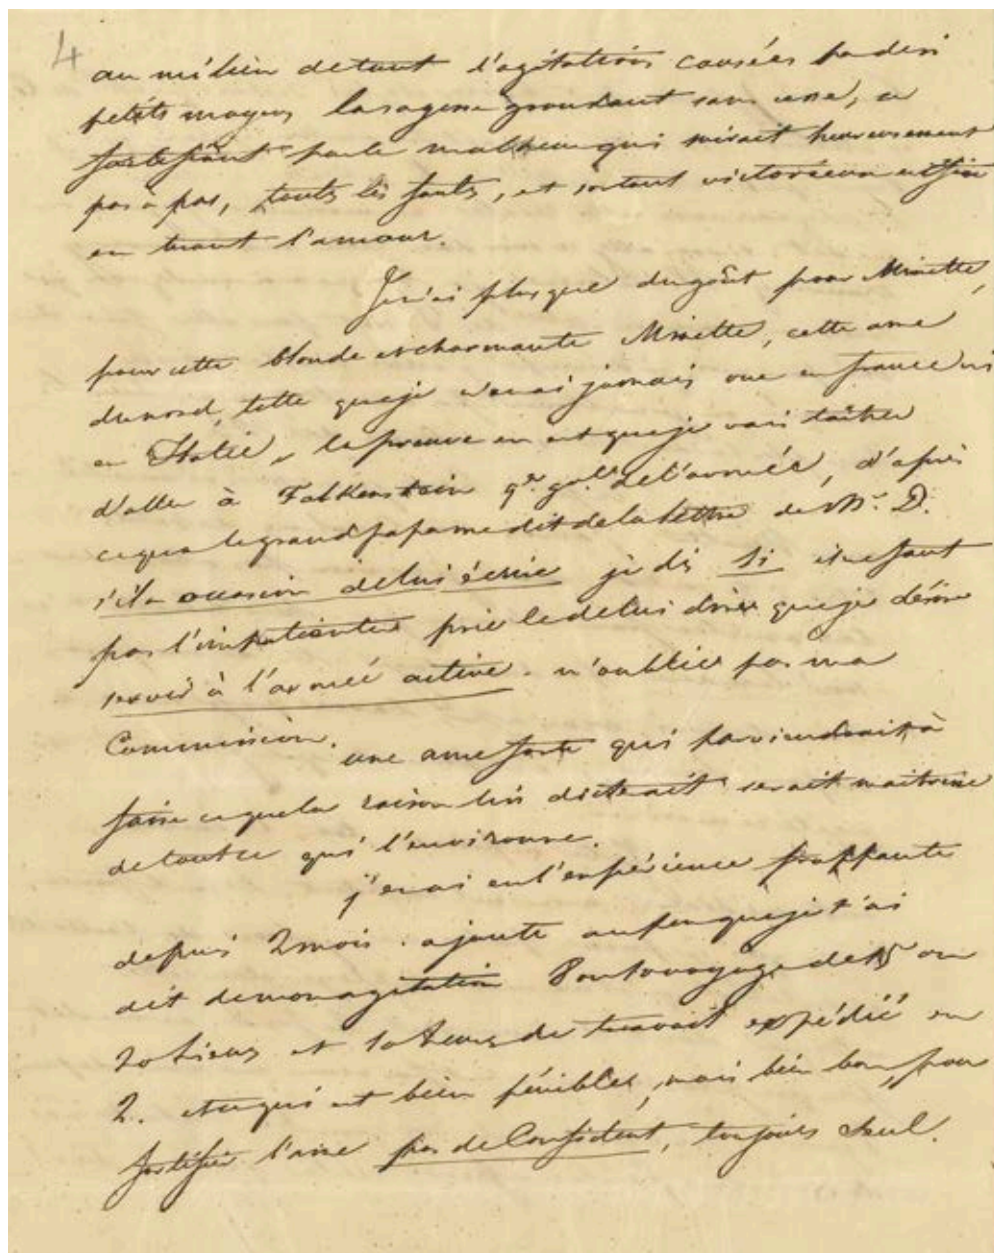 4
au milieu de tant d'agitations causées par des si
petits moyens la sagesse grondant sans cesse, se
fortifiant par le malheur qui suivait heureusement
pas à pas, toutes les fautes, et sortant victorieux enfin
en tuant l'amour.
J'en ai plus que du goût pour Minette,
pour cette blonde et charmante Minette, cette ame
du nord, telle que je n'en ai jamais vue en france ni
en Italie, la preuve en est que je vais tâcher
d'aller à Falkenstein qr. gal. de l'armée, d'après
ce que le grand papa me dit de la lettre de Mr. D.
s'il a occasion de lui écrire je dis si il ne faut
pas l'impatienter prie le de lui dire que je désire
servir à l'armée active. n'oublie pas ma
Commission.
une ame forte qui parviendrait à
faire ce que la raison lui dicterait serait maitresse
de tout ce qui l'environne.
j'en ai eu l'expérience frappante
depuis 2 mois. ajoute au peu que je t'ai
dit de mon agitation 8 ou 10 voyages de 15 ou
20 lieues et 10 de travail expédié en
2. et ce qui est bien pénible, mais bien bon, pour
fortifier l'ame pas de Confident, toujours seul.